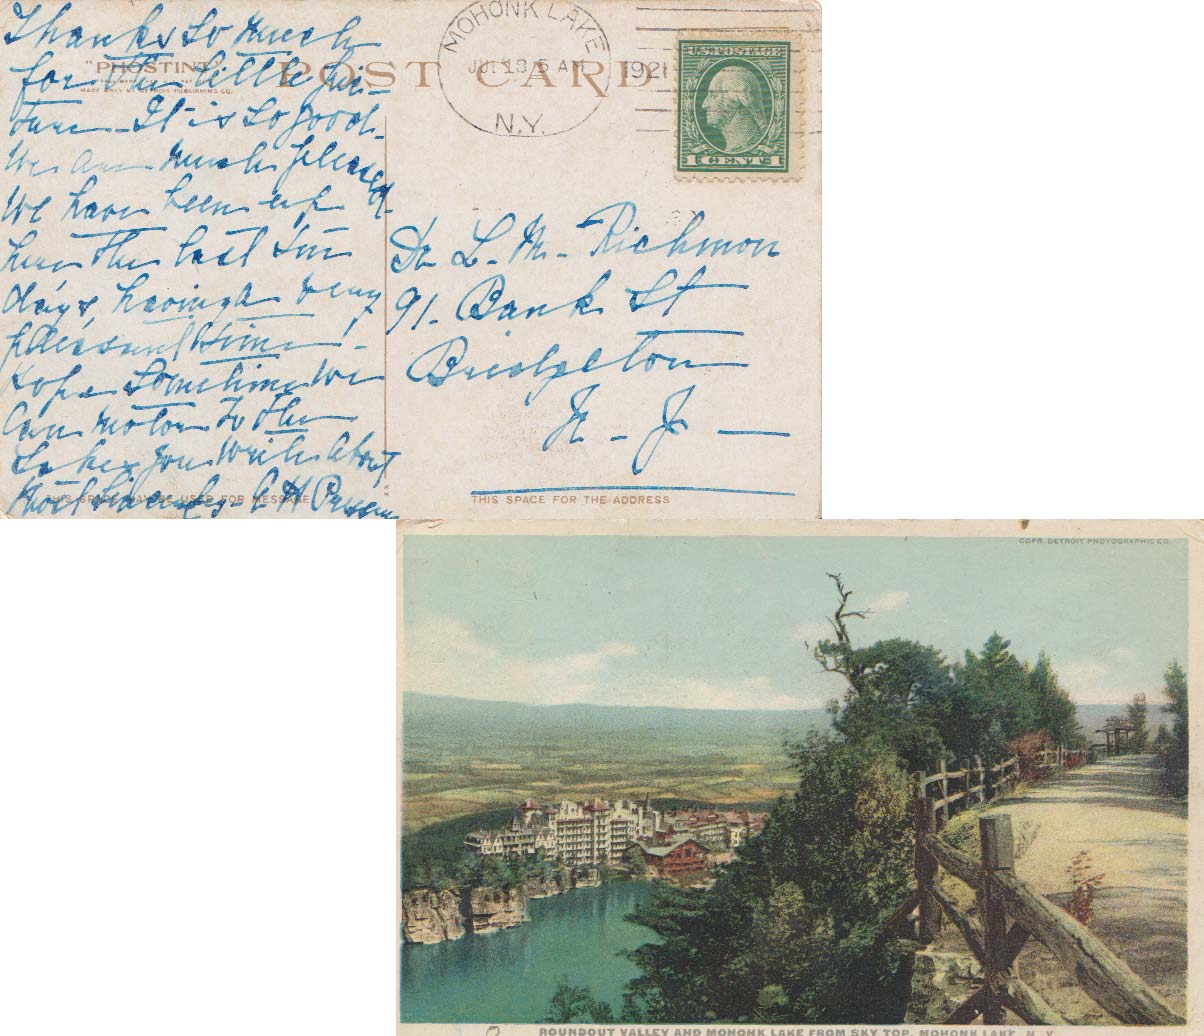 Thanks so much
for the little pic-
ture - It is so good.
We are much pleased.
We have been up
here the last
days, having a very
pleasant time -
Hope sometime we
can motor to the
Lakes you write about
"PHOSTINT"
MADE ONLY BY DETROIT PUBLISHING CO.
POST CARD
MOHONK LAKE
JUL 18 5 AM
1921
N.Y.
U.S. POSTAGE
1 CENT 1
Dr L. M. Richmon
91. Bank St
Bridgeton
N. J.
THIS SPACE MAY BE USED FOR MESSAGE
THIS SPACE FOR THE ADDRESS
COPR. DETROIT PHOTOGRAPHIC CO.
ROUNDOUT VALLEY AND MOHONK LAKE FROM SKY TOP, MOHONK LAKE, N. Y.